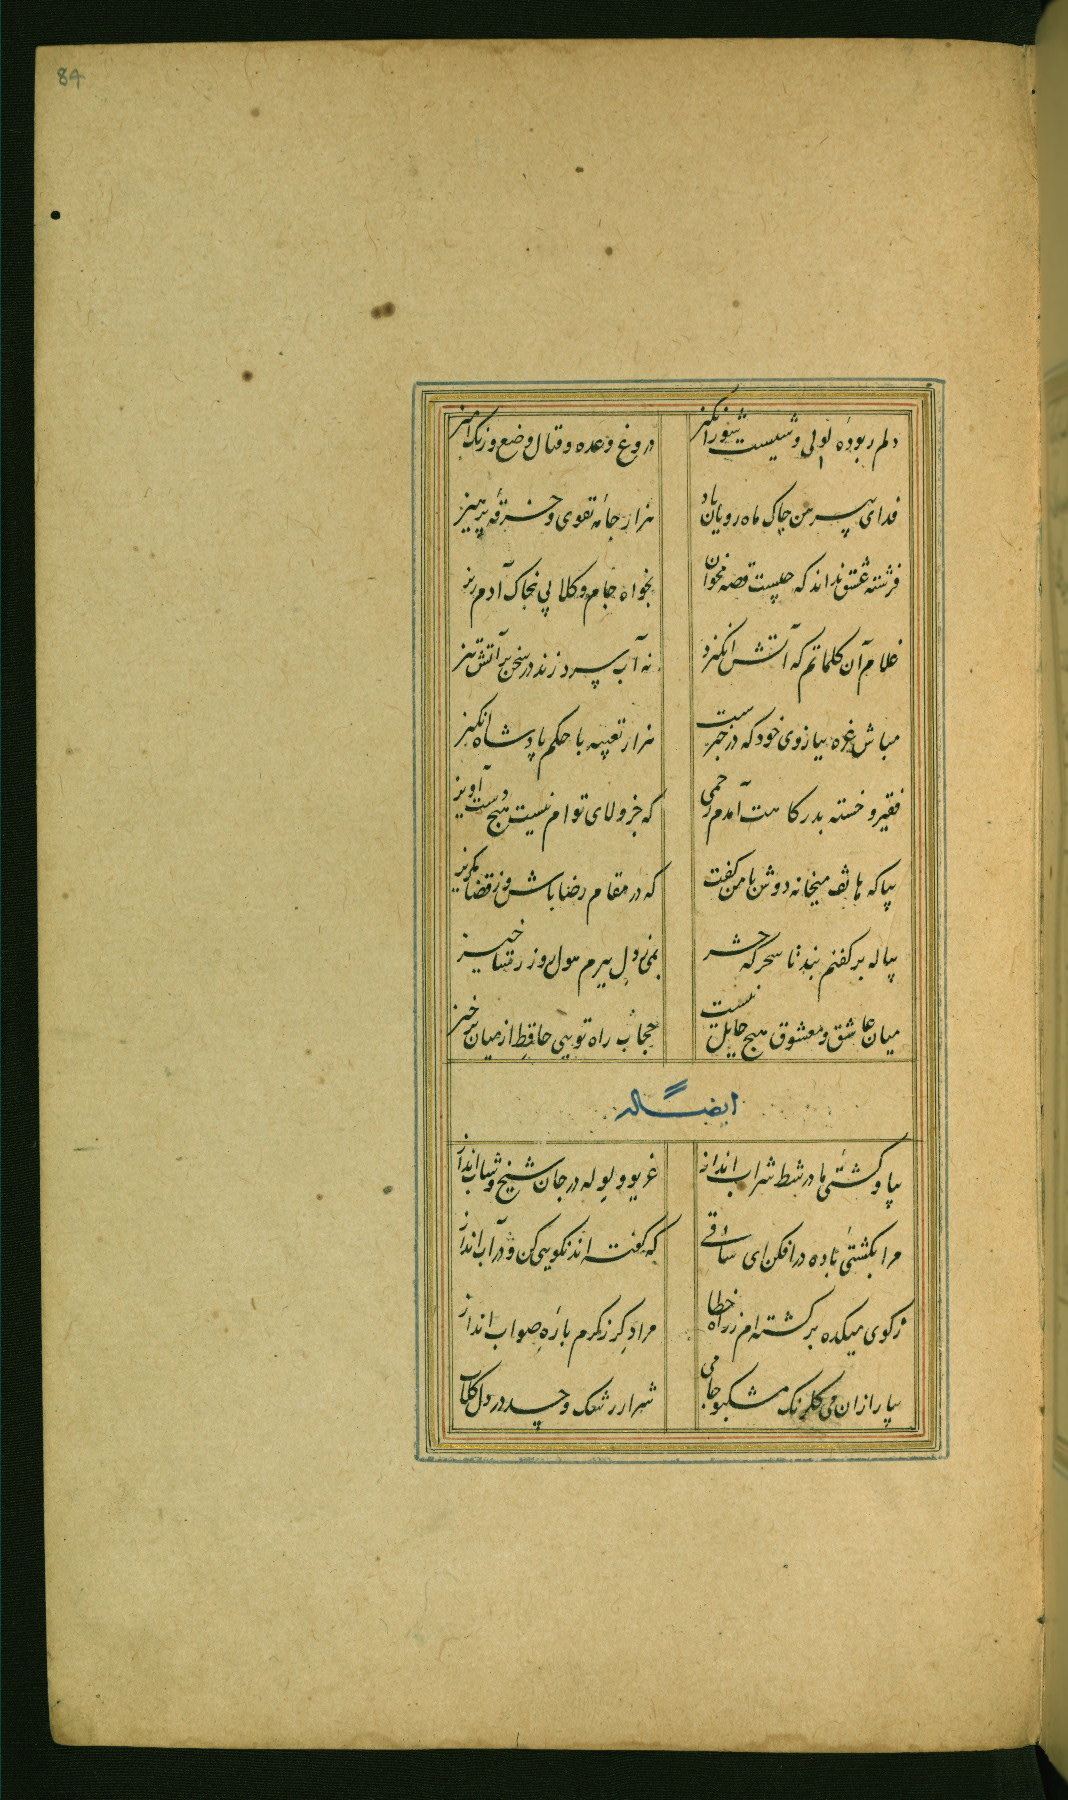 84
دلم ربوده لولی وشیست شورانگیز
دروغ وعده و قتال وضع و رنگ آمیز
فدای پیرهن چاک ماه رویان باد
هزار جامه تقوی و خرقه پرهیز
فرشته عشق نداند که چیست قصه مخوان
بخواه جام و کلابی بخاک آدم ریز
غلام آن کلماتم که آتش انگیزد
نه آب سرد زند در سخن بر آتش تیز
مباش غره ببازوی خود که در خبرست
هزار تعبیه با حکم پادشاه انگیز
فقیر و خسته بدرگاهت آمدم رحمی
که جز ولای توام نیست هیچ دست آویز
بیا که هاتف میخانه دوش با من گفت
که در مقام رضا باش وز قضا مگریز
پیاله بر کفنم بند تا سحرگه حشر
بمی ز دل ببرم هول روز رستاخیز
میان عاشق و معشوق هیچ حایل نیست
حجاب راه تویی حافظ از میان برخیز
ایضاً له
بیا و کشتی ما در شط شراب انداز
غریو و ولوله در جان شیخ و شاب انداز
مرا بکشتی باده درافکن ای ساقی
که گفته اند نکویی کن و در آب انداز
ز کوی میکده برگشته ام ز راه خطا
مرا دگر ز کرم با ره صواب انداز
بیار ازان می گلرنگ مشکبو جامی
شرار رشک و حسد در دل گلاب